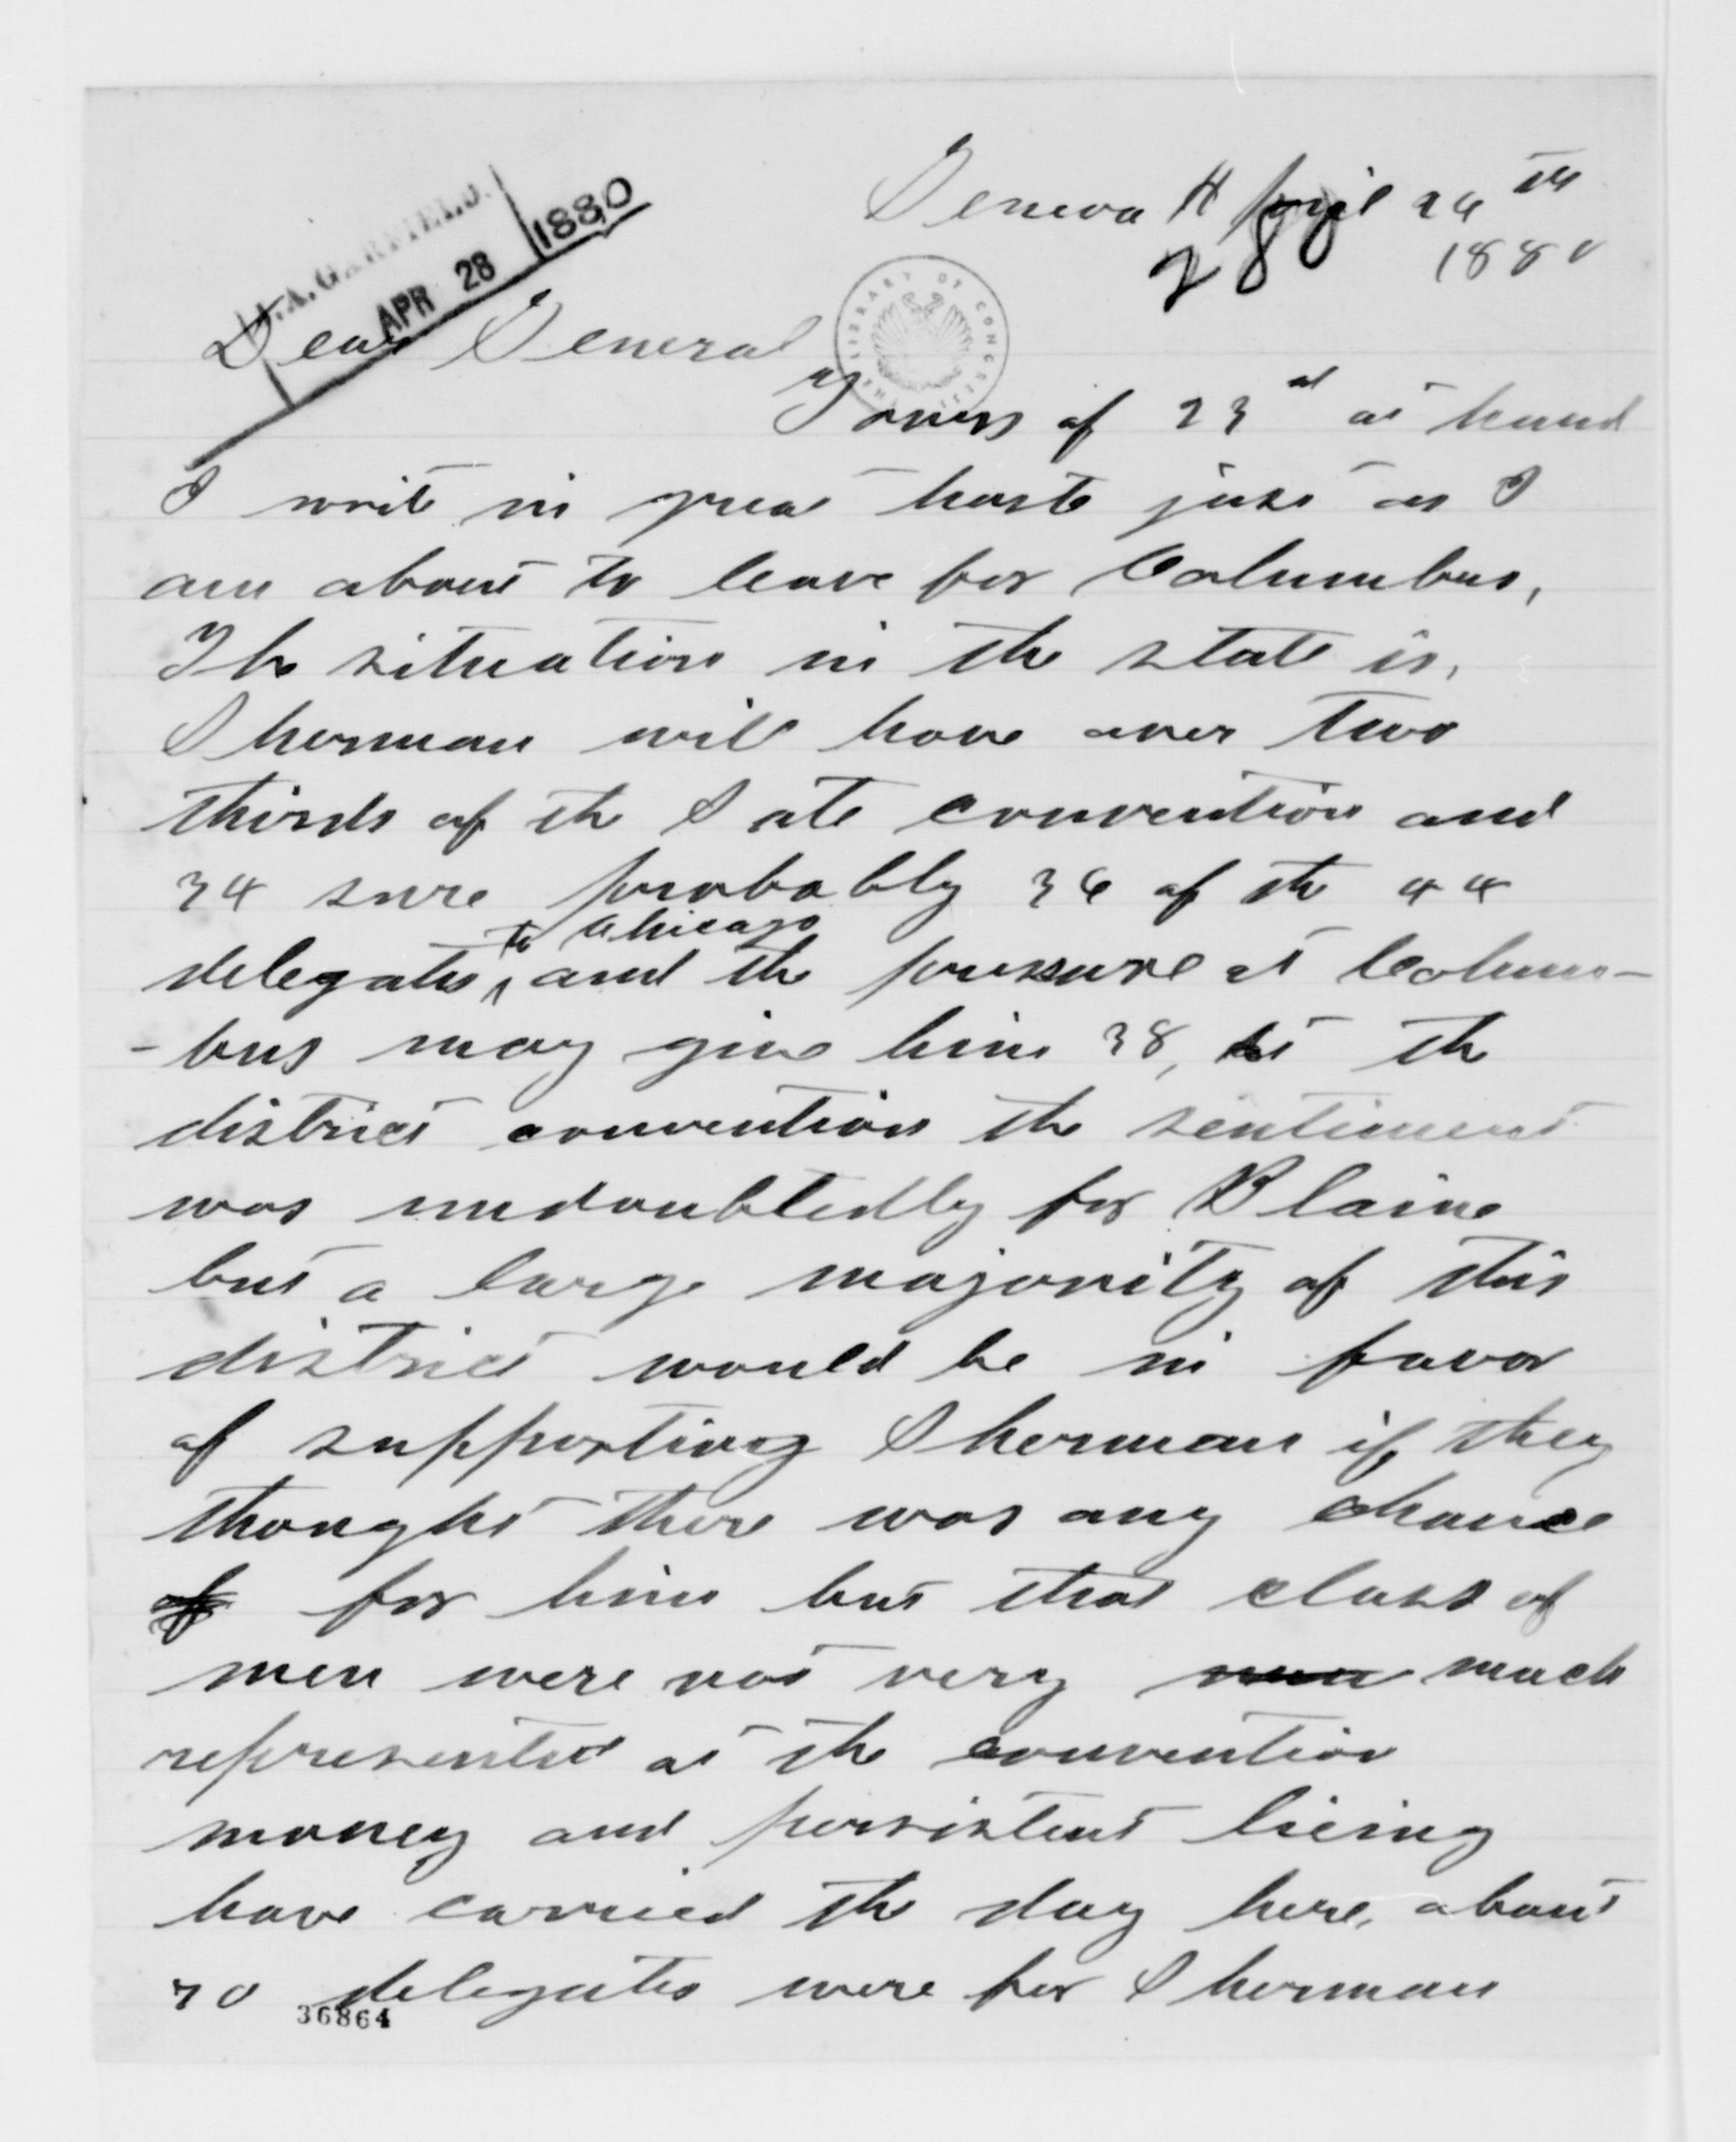 Geneva April 26th
1880
288
J.A. GARFIELD.
APR 28 1880
THE LIBRARY OF CONGRESS
Dear General
Yours of 23d at hand
I write in great haste just as I
am about to leave for Columbus,
The situation in the state is,
Sherman will have over two
thirds of the Sate convention and
34 sure probably 36 of the 44
to Chicago
delegates, and the pressure at Colum-
-bus may give him 38, At the
district convention the sentiment
was undoubtedly for Blaine
but a large majority of this
district would be in favor
of supporting Sherman if they
thought there was any chance
for him but that class of
men were not very much
represented at the convention
money and persistent lieing
have carried the day here, about
70 delegates were for Sherman
36864